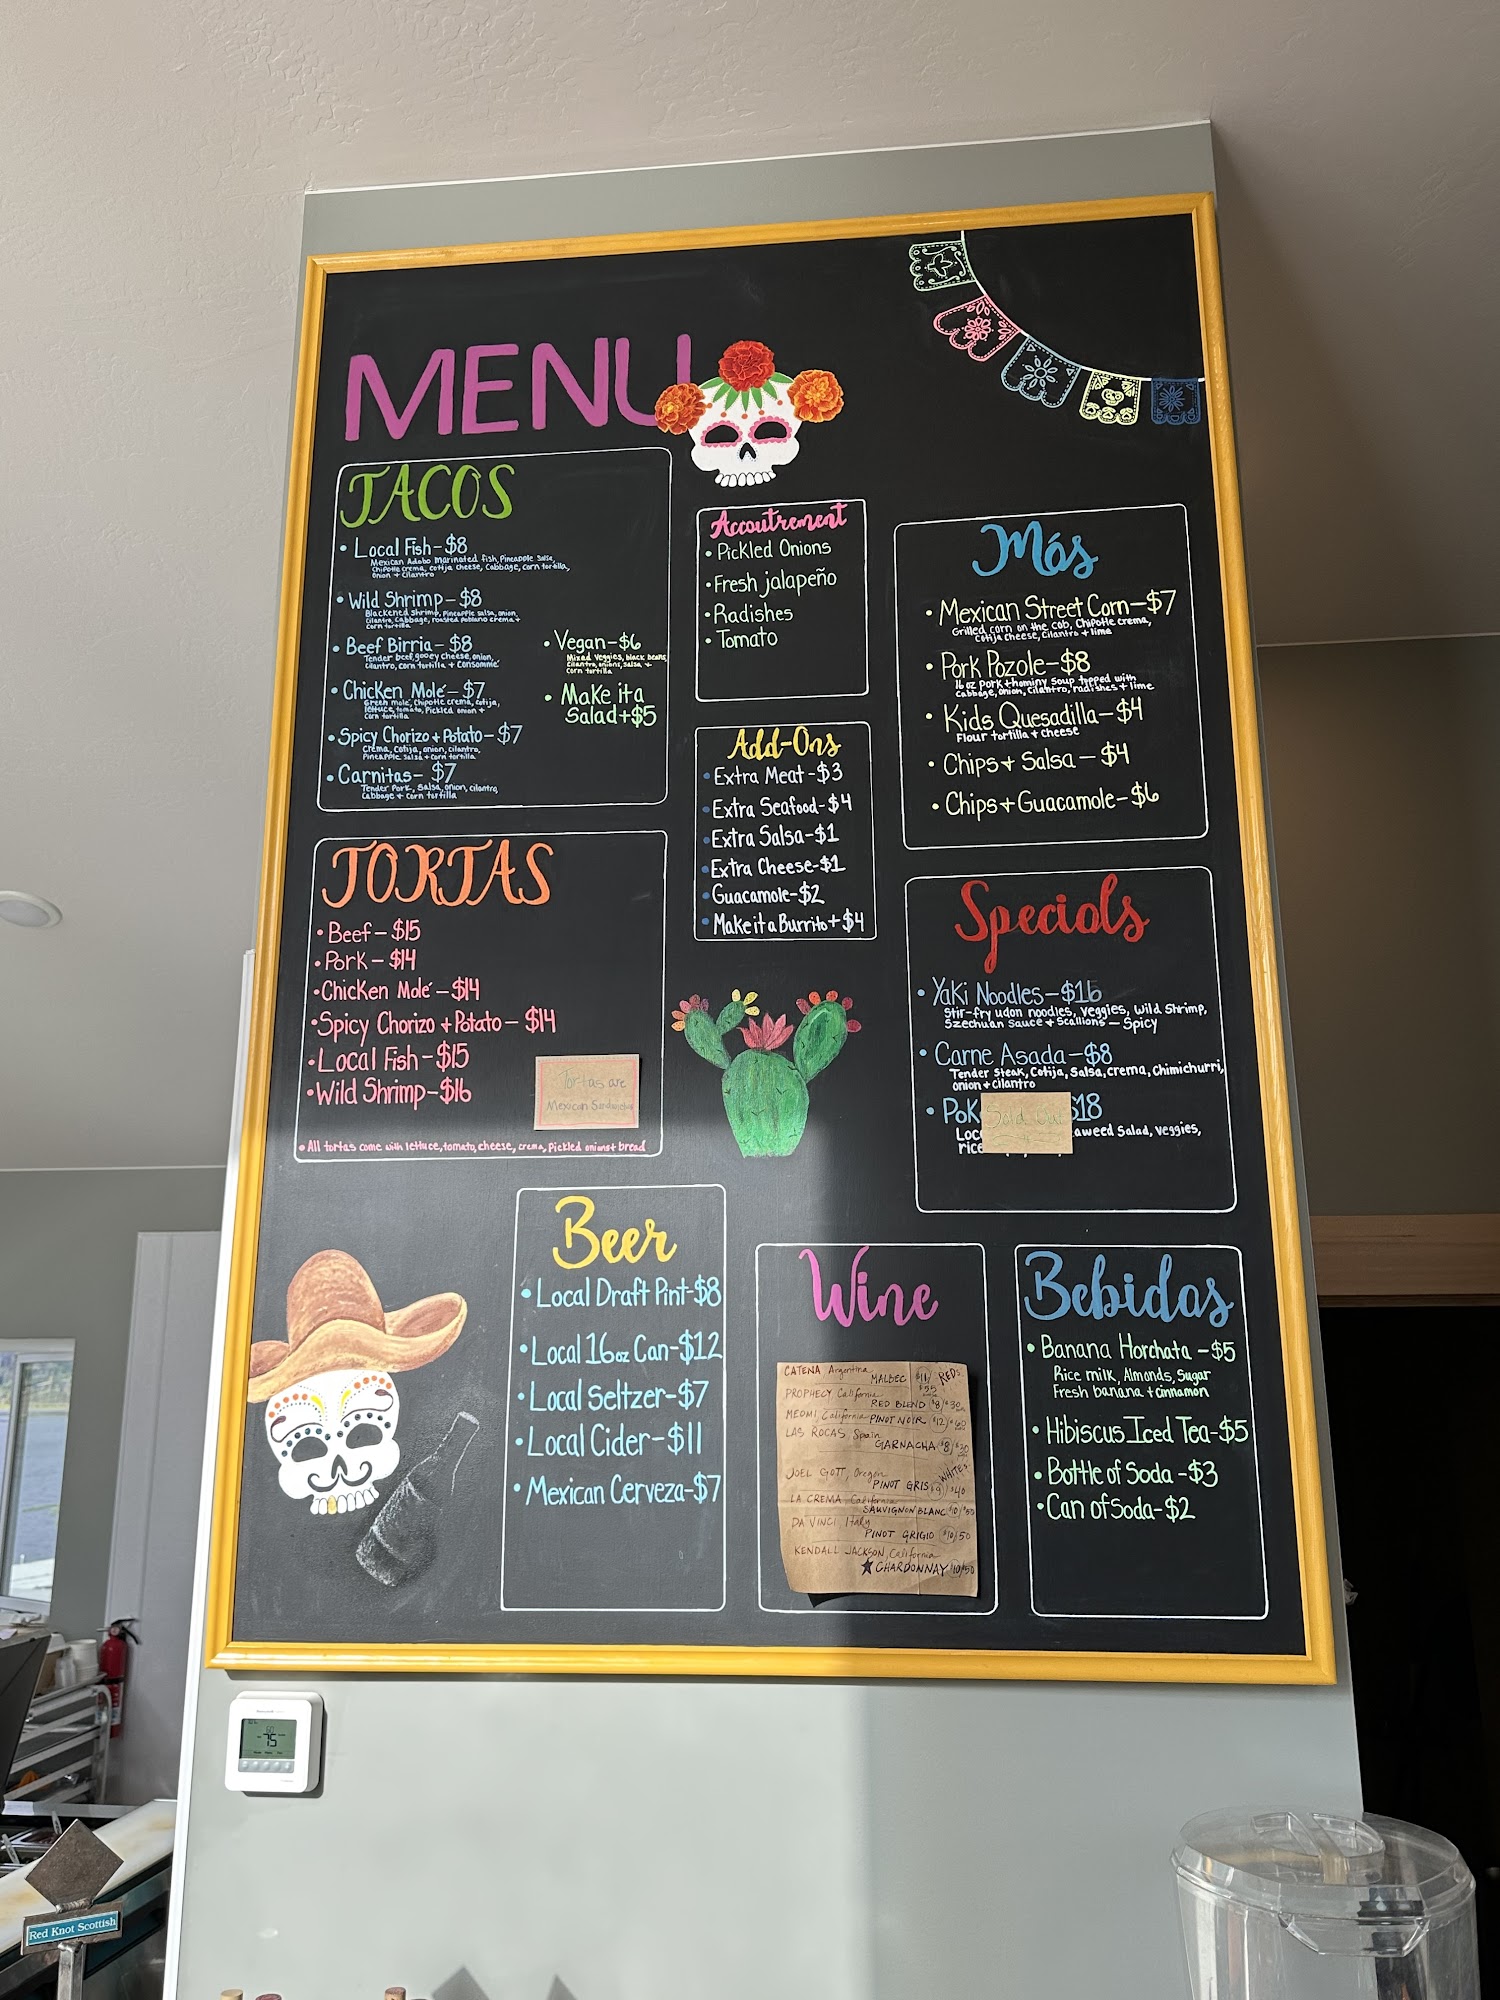 MENU
TACOS
• Local Fish - $8
Mexican Adobo marinated fish, Pineapple Salsa,
Chipotle crema, cotija cheese, Cabbage, corn tortilla,
onion + cilantro
• Wild Shrimp - $8
Blackened Shrimp, Pineapple salsa, onion,
cilantro, Cabbage, roasted poblano crema +
corn tortilla
• Beef Birria - $8
Tender beef, gooey cheese, onion,
cilantro, corn tortilla + Consommé
• Chicken Molé - $7
Green molé, Chipotle crema, cotija,
lettuce, tomato, Pickled onion +
corn tortilla
• Spicy Chorizo + Potato - $7
Crema, cotija, onion, cilantro,
Pineapple salsa + corn tortilla
• Carnitas - $7
Tender Pork, Salsa, onion, cilantro,
Cabbage + Corn tortilla
• Vegan - $6
Mixed veggies, black beans,
cilantro, onions, salsa, +
corn tortilla
• Make it a
Salad + $5
TORTAS
• Beef - $15
• Pork - $14
• Chicken Molé - $14
• Spicy Chorizo + Potato - $14
• Local Fish - $15
• Wild Shrimp - $16
Tortas are
Mexican Sandwiches
• All tortas come with lettuce, tomato, cheese, crema, Pickled onions + bread
Accoutrement
• Pickled Onions
• Fresh jalapeño
• Radishes
• Tomato
Add-Ons
• Extra Meat - $3
• Extra Seafood - $4
• Extra Salsa - $1
• Extra Cheese - $1
• Guacamole - $2
• Make it a Burrito + $4
Más
• Mexican Street Corn - $7
Grilled corn on the cob, Chipotle crema,
Cotija cheese, Cilantro + lime
• Pork Pozole - $8
16 oz Pork + hominy Soup topped with
Cabbage, onion, cilantro, radishes + lime
• Kids Quesadilla - $4
Flour tortilla + cheese
• Chips + Salsa - $4
• Chips + Guacamole - $6
Specials
• Yaki Noodles - $16
Stir-fry udon noodles, veggies, Wild Shrimp,
Szechuan Sauce + Scallions - Spicy
• Carne Asada - $8
Tender Steak, Cotija, Salsa, crema, Chimichurri,
onion + cilantro
• Pok $18
Sold Out
Loc aweed Salad, veggies,
rice
Beer
• Local Draft Pint - $8
• Local 16oz Can - $12
• Local Seltzer - $7
• Local Cider - $11
• Mexican Cerveza - $7
Wine
REDS
CATENA Argentina
MALBEC $11/$55
PROPHECY California
RED BLEND $8/$30
MEOMI, California PINOT NOIR $12/$60
LAS ROCAS Spain
GARNACHA $8/$30
WHITES
JOEL GOTT, Oregon
PINOT GRIS $9/$40
LA CREMA California
SAUVIGNON BLANC $10/$50
DA VINCI Italy
PINOT GRIGIO $10/50
KENDALL JACKSON, California
★ CHARDONNAY $10/$50
Bebidas
• Banana Horchata - $5
Rice milk, Almonds, Sugar
Fresh banana + cinnamon
• Hibiscus Iced Tea - $5
• Bottle of Soda - $3
• Can of Soda - $2
75
Red Knot Scottish